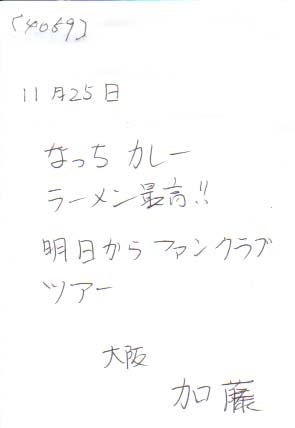 [4059]
11月25日
なっち カレー
ラーメン最高!!
明日から ファンクラブ
ツアー
大阪
加藤